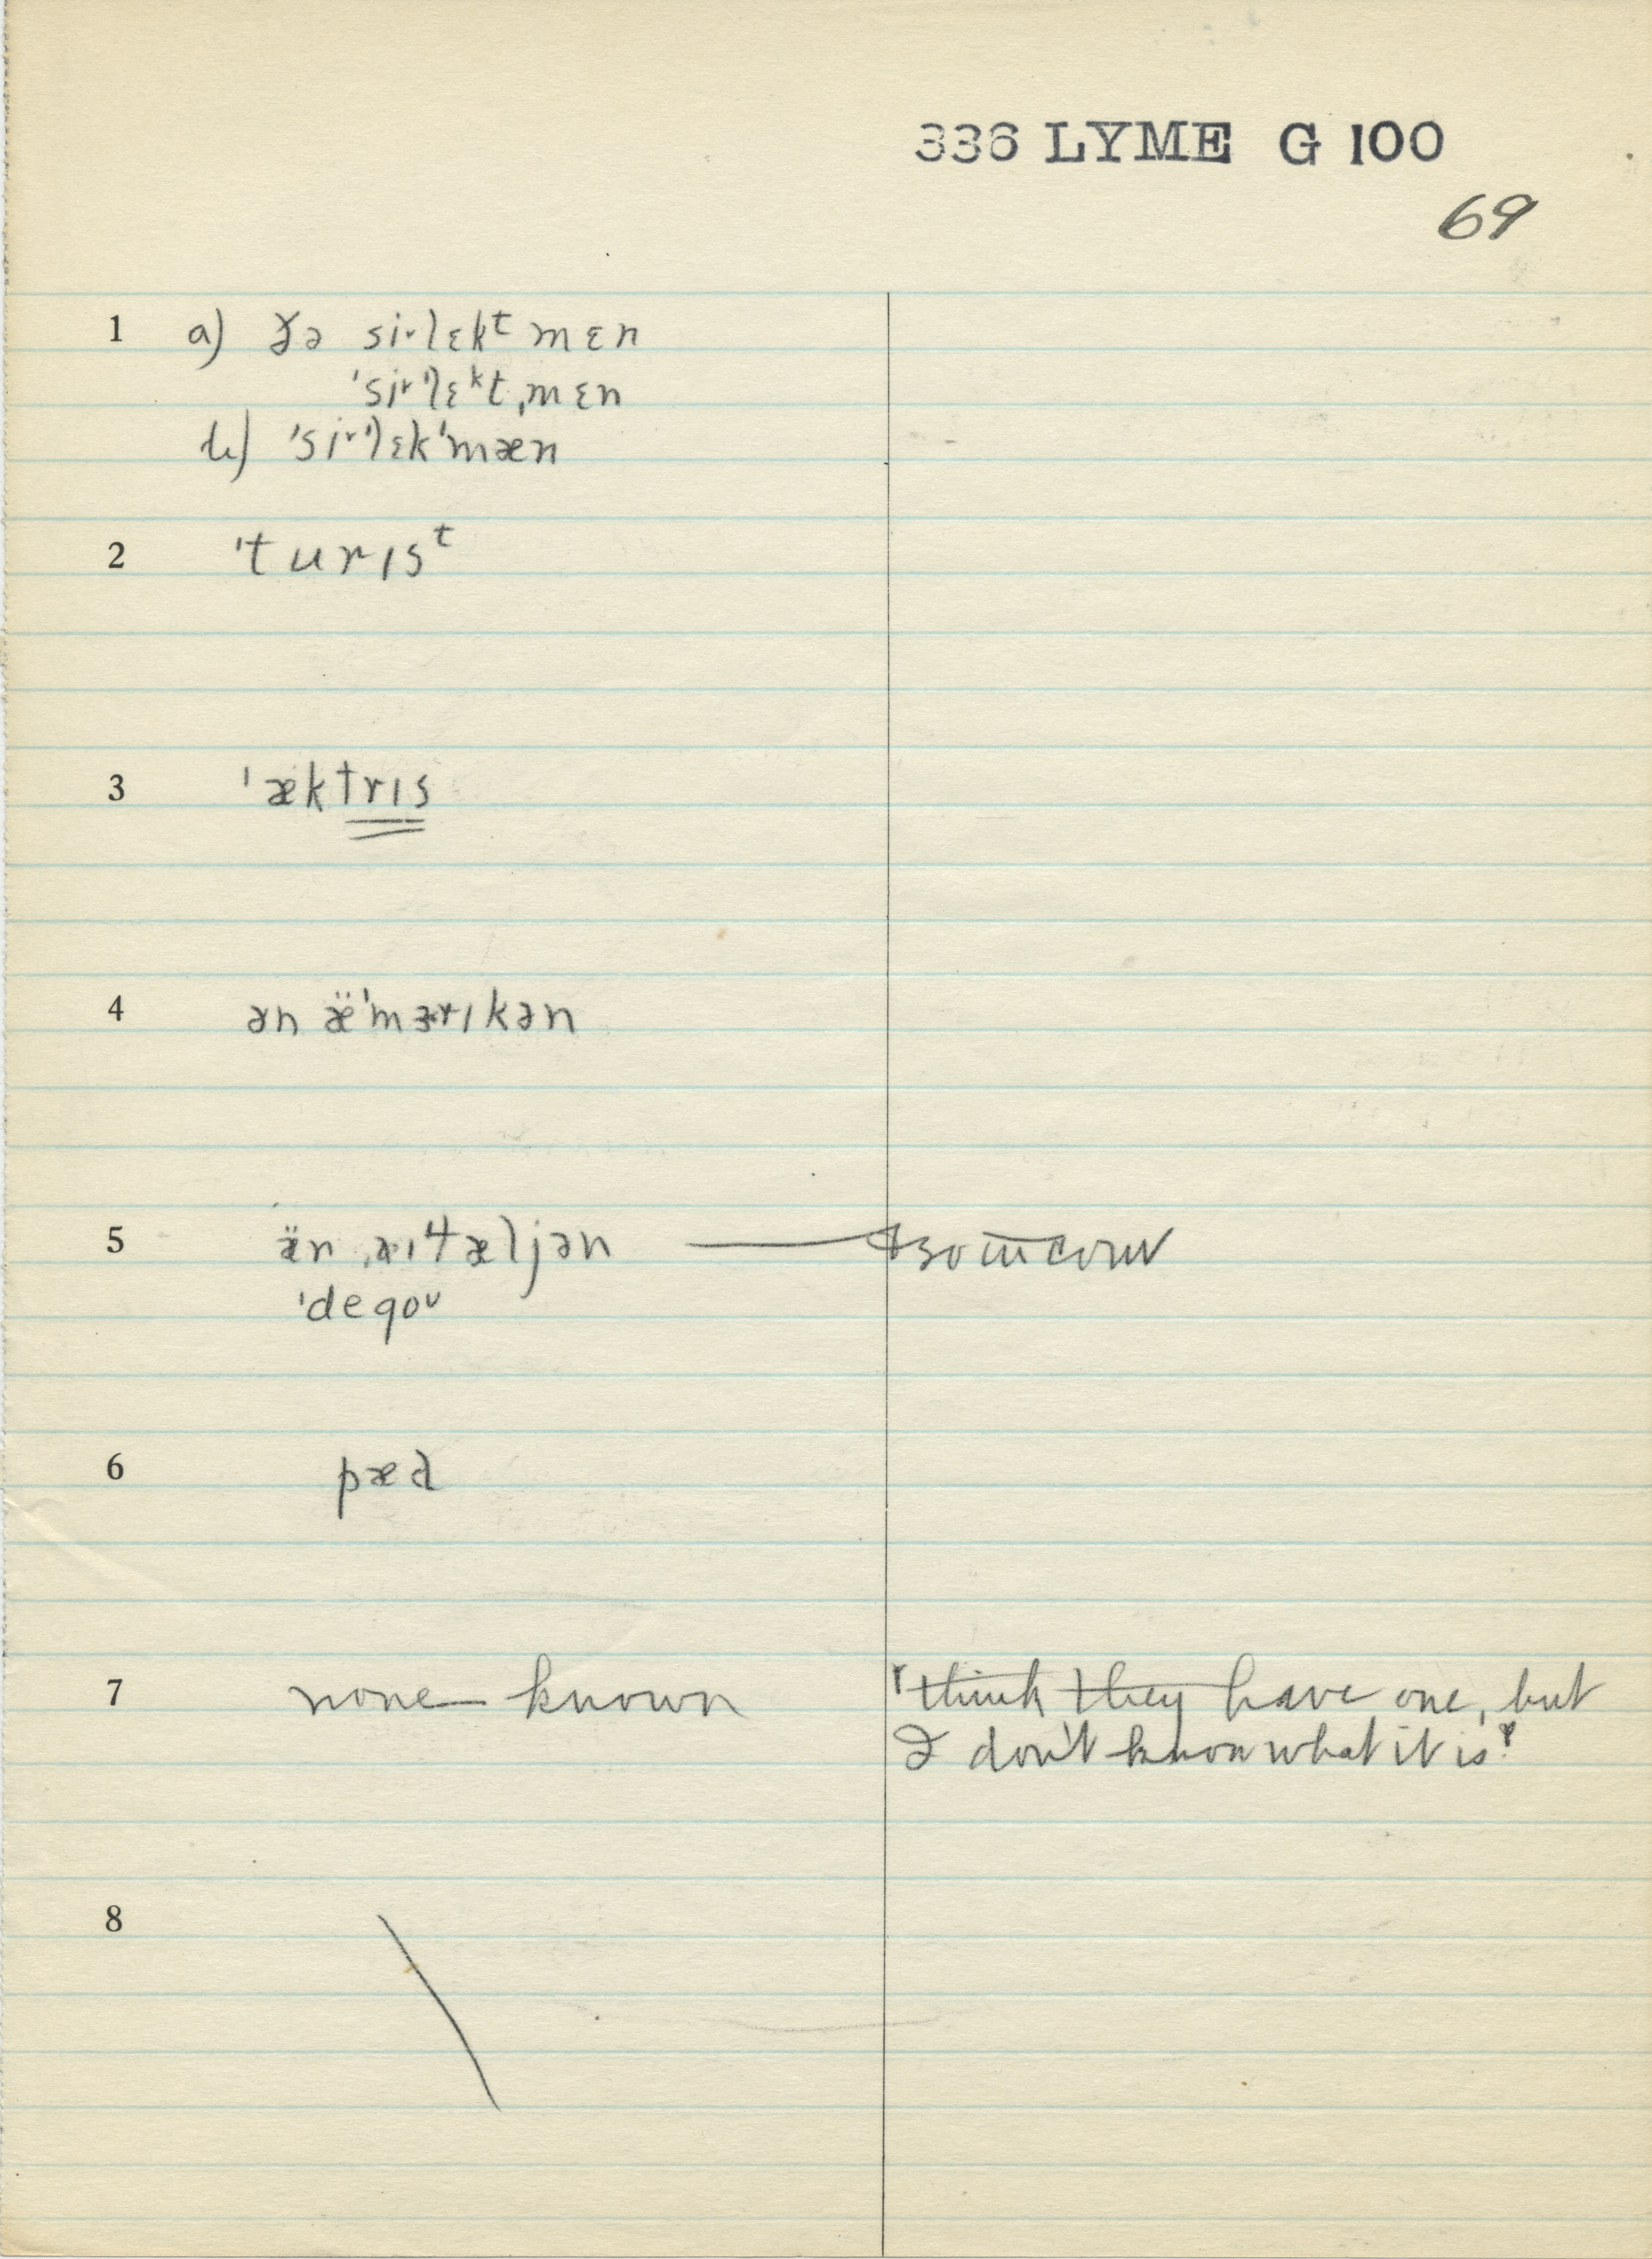 336 LYME G 100
69
1 a) ðə si˞lɛkᵗ mɛn
ˈsi˞ˈlɛᵏtˌmɛn
b) ˈsi˞ˈlɛkˈmæn
2 ˈturɪsᵗ
3 ˈæktrɪs
4 ən æ̈ˈmɜrɪkən
5 æ̈n
ˈdegoᵘ
6 pæd
7 none known "think they have one, but
I don't know what it is"
8